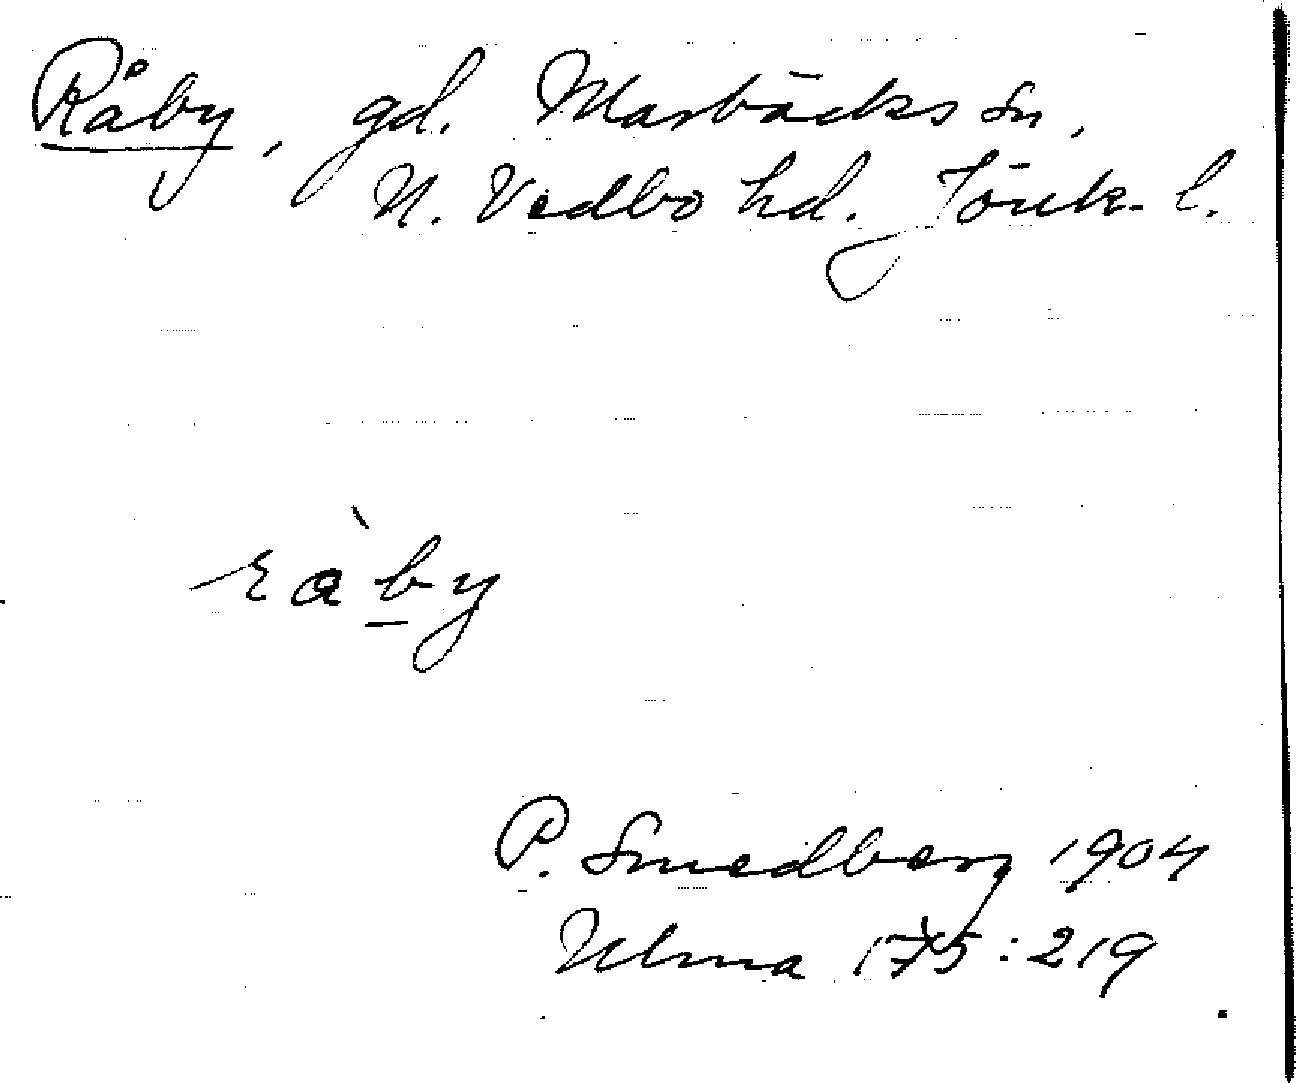 Råby, gd. Marbäcks sn,
N. Vedbo hd. Jönk. l.
ràby
P. Smedberg 1904
Ulma 175:219